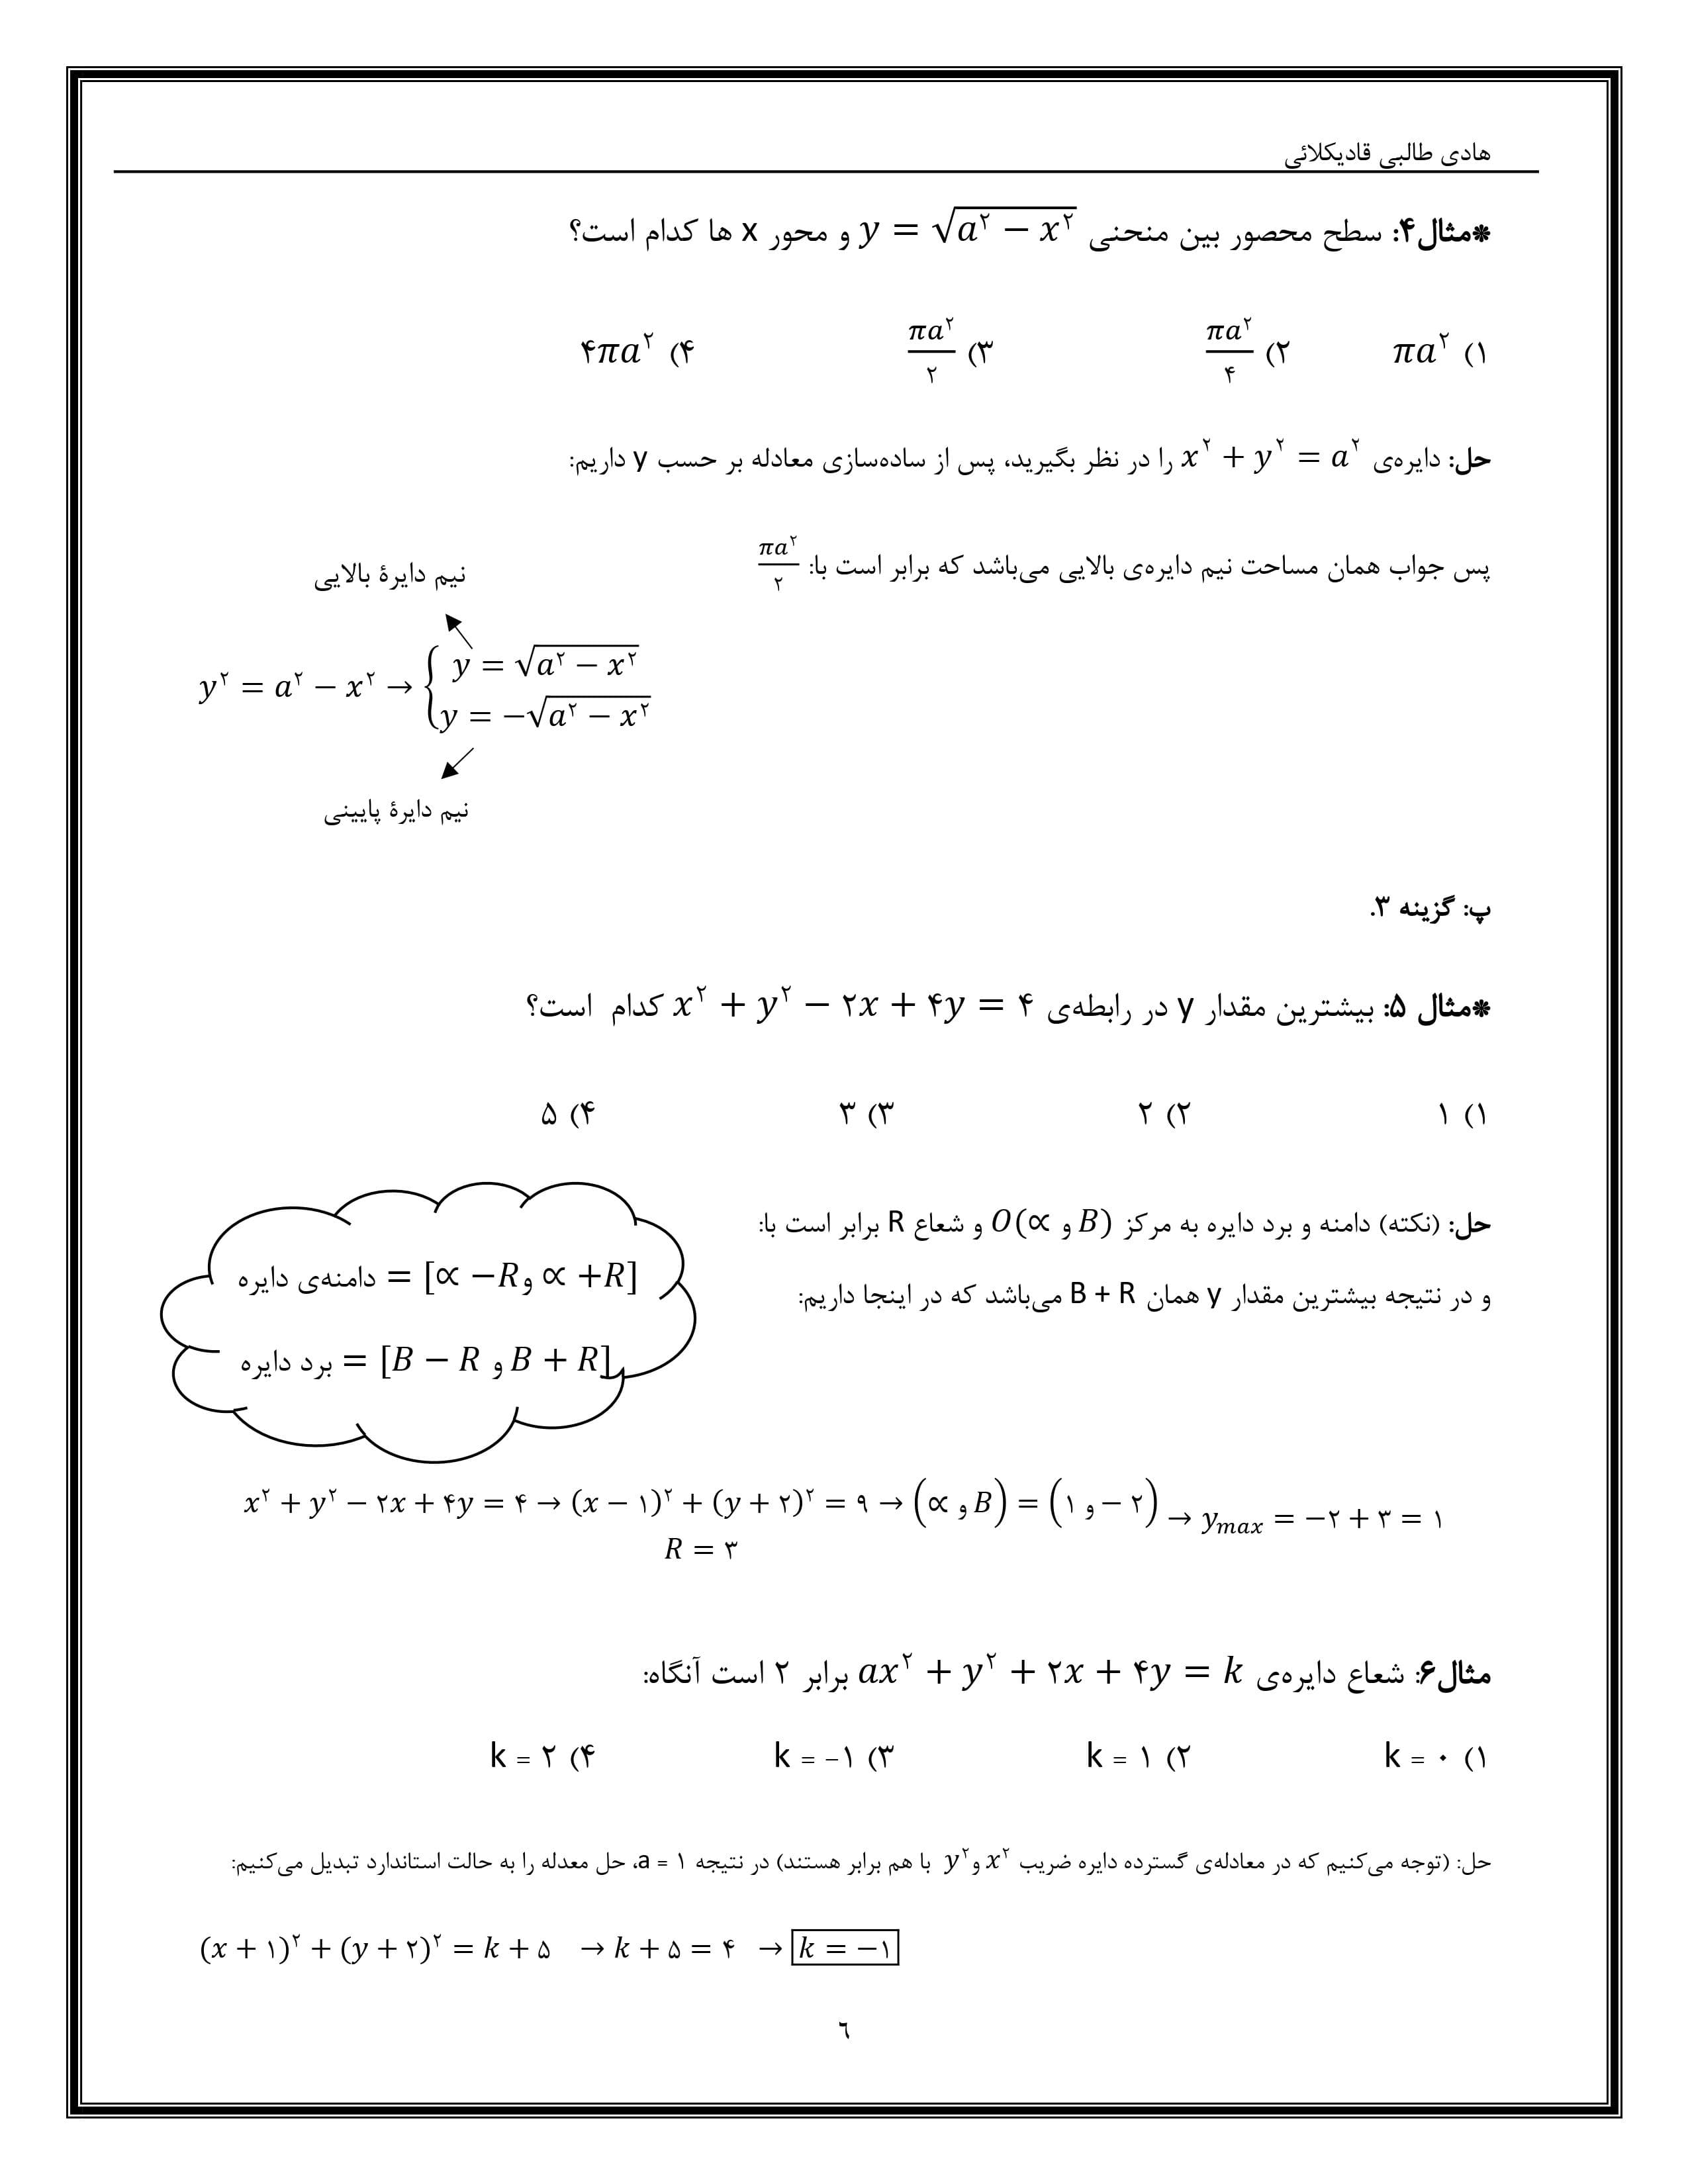 هادی طالبی قادیکلائی
✽مثال۴: سطح محصور بین منحنی y = √(a^۲ − x^۲) و محور x ها کدام است؟
۱) πa^۲ ۲) πa^۲/۴ ۳) πa^۲/۲ ۴) ۴πa^۲
حل: دایره‌ی x^۲ + y^۲ = a^۲ را در نظر بگیرید، پس از ساده‌سازی معادله بر حسب y داریم:
پس جواب همان مساحت نیم دایره‌ی بالایی می‌باشد که برابر است با: πa^۲/۲
نیم دایرهٔ بالایی
y^۲ = a^۲ − x^۲ → { y = √(a^۲ − x^۲)
y = −√(a^۲ − x^۲)
نیم دایرهٔ پایینی
پ: گزینه ۳.
✽مثال ۵: بیشترین مقدار y در رابطه‌ی x^۲ + y^۲ − ۲x + ۴y = ۴ کدام است؟
۱) ۱ ۲) ۲ ۳) ۳ ۴) ۵
حل: (نکته) دامنه و برد دایره به مرکز O(∝ و B) و شعاع R برابر است با:
و در نتیجه بیشترین مقدار y همان B + R می‌باشد که در اینجا داریم:
دامنه‌ی دایره = [∝ −R و ∝ +R]
برد دایره = [B − R و B + R]
x^۲ + y^۲ − ۲x + ۴y = ۴ → (x − ۱)^۲ + (y + ۲)^۲ = ۹ → (∝ و B) = (۱ و − ۲) → y_max = −۲ + ۳ = ۱
R = ۳
مثال۶: شعاع دایره‌ی ax^۲ + y^۲ + ۲x + ۴y = k برابر ۲ است آنگاه:
۱) k = ۰ ۲) k = ۱ ۳) k = −۱ ۴) k = ۲
حل: (توجه می‌کنیم که در معادله‌ی گسترده دایره ضریب x^۲ و y^۲ با هم برابر هستند) در نتیجه a = ۱، حل معدله را به حالت استاندارد تبدیل می‌کنیم:
(x + ۱)^۲ + (y + ۲)^۲ = k + ۵ → k + ۵ = ۴ → k = −۱
٦